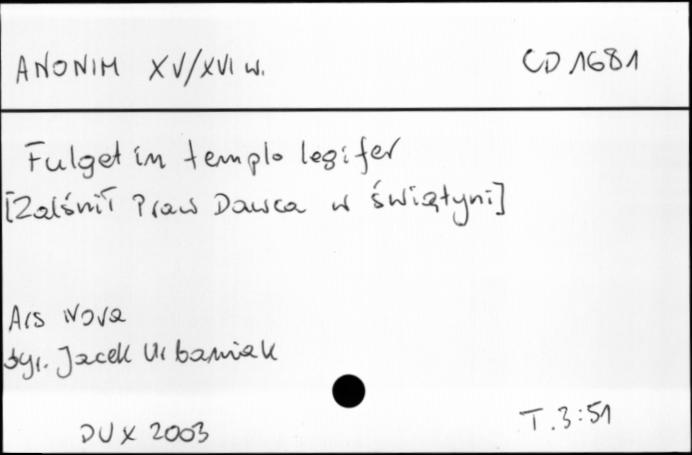 ANONIM XV/XVI w. CD 1681
Fulget in templo legifer
[Zalśnił Praw Dawca w świątyni]
Ars Nova
dyr. Jacek Urbaniak
DUX 2003 T. 3:51